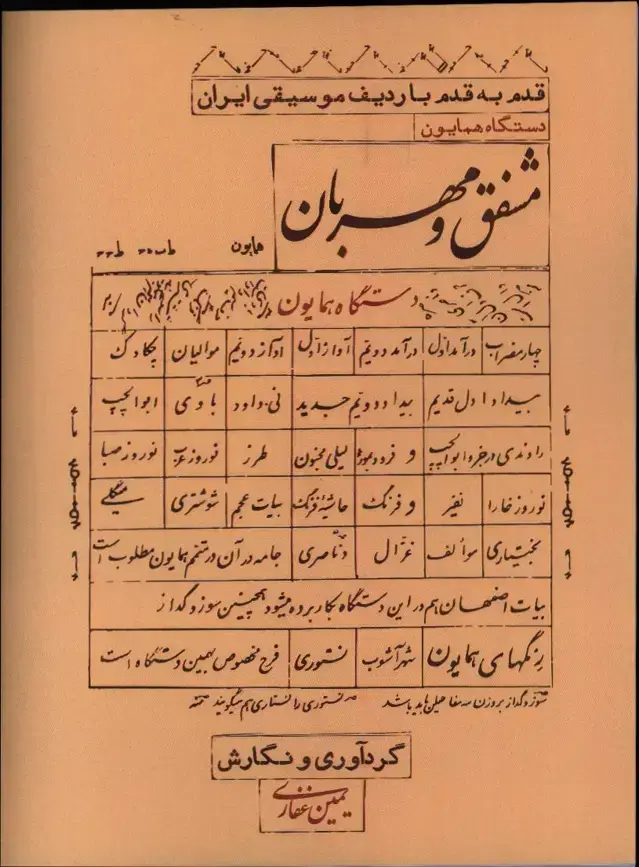 قدم به قدم با ردیف موسیقی ایران
دستگاه همایون
مشفق و مهربان
همایون
دستگاه همایون
چهار مضراب درآمد اول درآمد دویم آواز اول آواز دویم موالیان چکاوک
بیداد اول قدیم بیداد دویم جدید نی داود باوی ابوالچپ
راوندی در جزو ابوالچپ و فرود لیلی مجنون طرز نوروز عرب نوروز صبا
نوروز خارا نفیر و فرنگ حاشیه فرنگ بیات عجم شوشتری میگلی
بختیاری موآلف غزال دناصری جامه در آن در تتم همایون مطلوب است
بیات اصفهان هم در این دستگاه بکار برده میشود همچنین سوز و گداز
رنگهای همایون شهرآشوب نستوری فرح مخصوص بهمین دستگاه است
سوز و گداز بر وزن باید باشد
نستوری را نستاری هم میگویند
گردآوری و نگارش
یمین غفاری